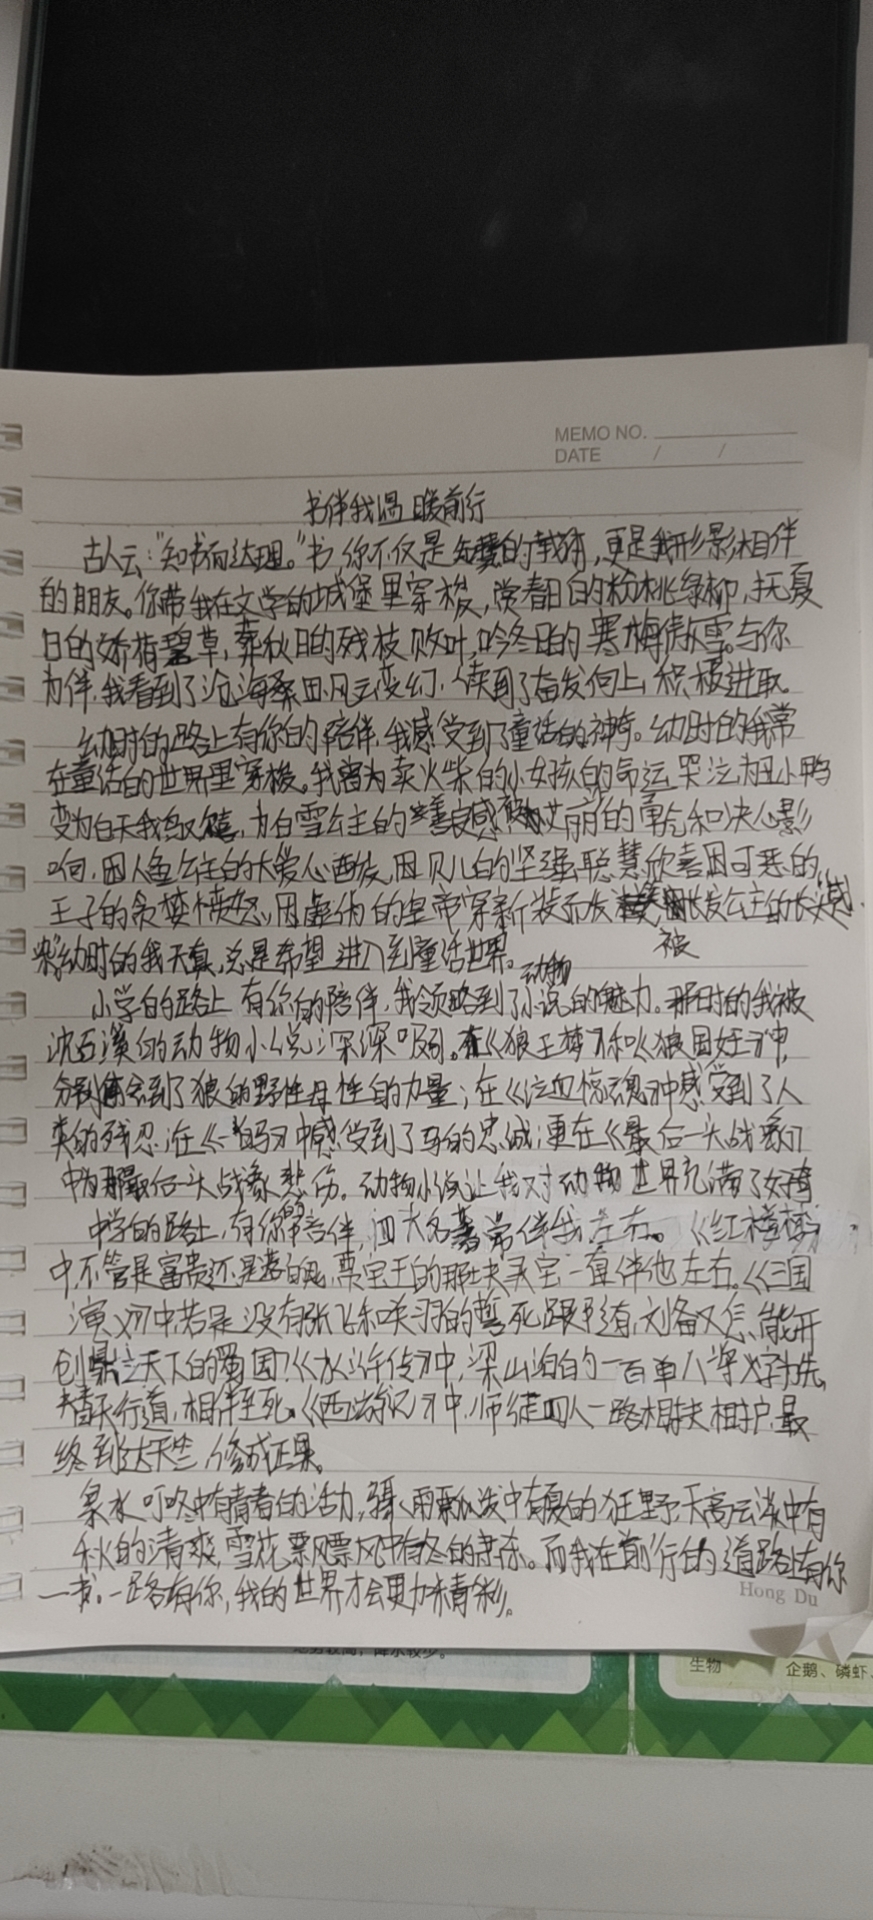 MEMO NO.
DATE / /
书伴我温暖前行
古人云:“知书而达理。”书,你不仅是先贤的载体,更是我形影相伴
的朋友。你带我在文学的城堡里穿梭,赏春日的粉桃绿柳,抚夏
日的娇梅碧草,葬秋日的残枝败叶,吟冬日的寒梅傲雪。与你
为伴,我看到了沧海桑田风云变幻,读到了奋发向上,积极进取。
幼时的路上有你的陪伴,我感受到了童话的神奇。幼时的我常
在童话的世界里穿梭。我曾为卖火柴的小女孩的命运哭泣,为丑小鸭
变为白天鹅欢喜,为白雪公主的善良感动,被艾丽的勇气和决心影
响,因人鱼公主的大爱心酸,因贝儿的坚强聪慧欣喜,因可恶的
王子的贪婪愤怒,因虚伪的皇帝穿新装而发笑,长发公主的长发感
被
幼时的我天真,总是希望进入到童话世界。
动物
小学的路上有你的陪伴,我领略到了小说的魅力。那时的我被
沈石溪的动物小说深深吸引。在《狼王梦》和《狼国女王》中,
分别体会到了狼的野性母性的力量;在《泣血惊魂》中感受到了人
类的残忍;在《一的马》中感受到了马的忠诚;更在《最后一头战象》
中为那最后一头战象悲伤。动物小说让我对动物世界充满了好奇
中学的路上,有你的陪伴,四大名著常伴我左右。《红楼梦》
中,不管是富贵还是落魄,贾宝玉的那块灵宝一直伴他左右。《三国
演义》中若是没有张飞和关羽的誓死跟随,刘备又怎能开
创鼎立天下的蜀国?《水浒传》中,梁山泊的一百单八将义字当先,
替天行道,相伴至死。《西游记》中,师徒四人一路相扶相护,最
终到达天竺,修成正果。
泉水叮咚中有青春的活力,骤雨瓢泼中有夏的狂野,天高云淡中有
秋的清爽,雪花飘飘风中有冬的肃杀。而我在前行的道路上有你
一书。一路有你,我的世界才会更加精彩。
Hong Du
生物
企鹅、磷虾、